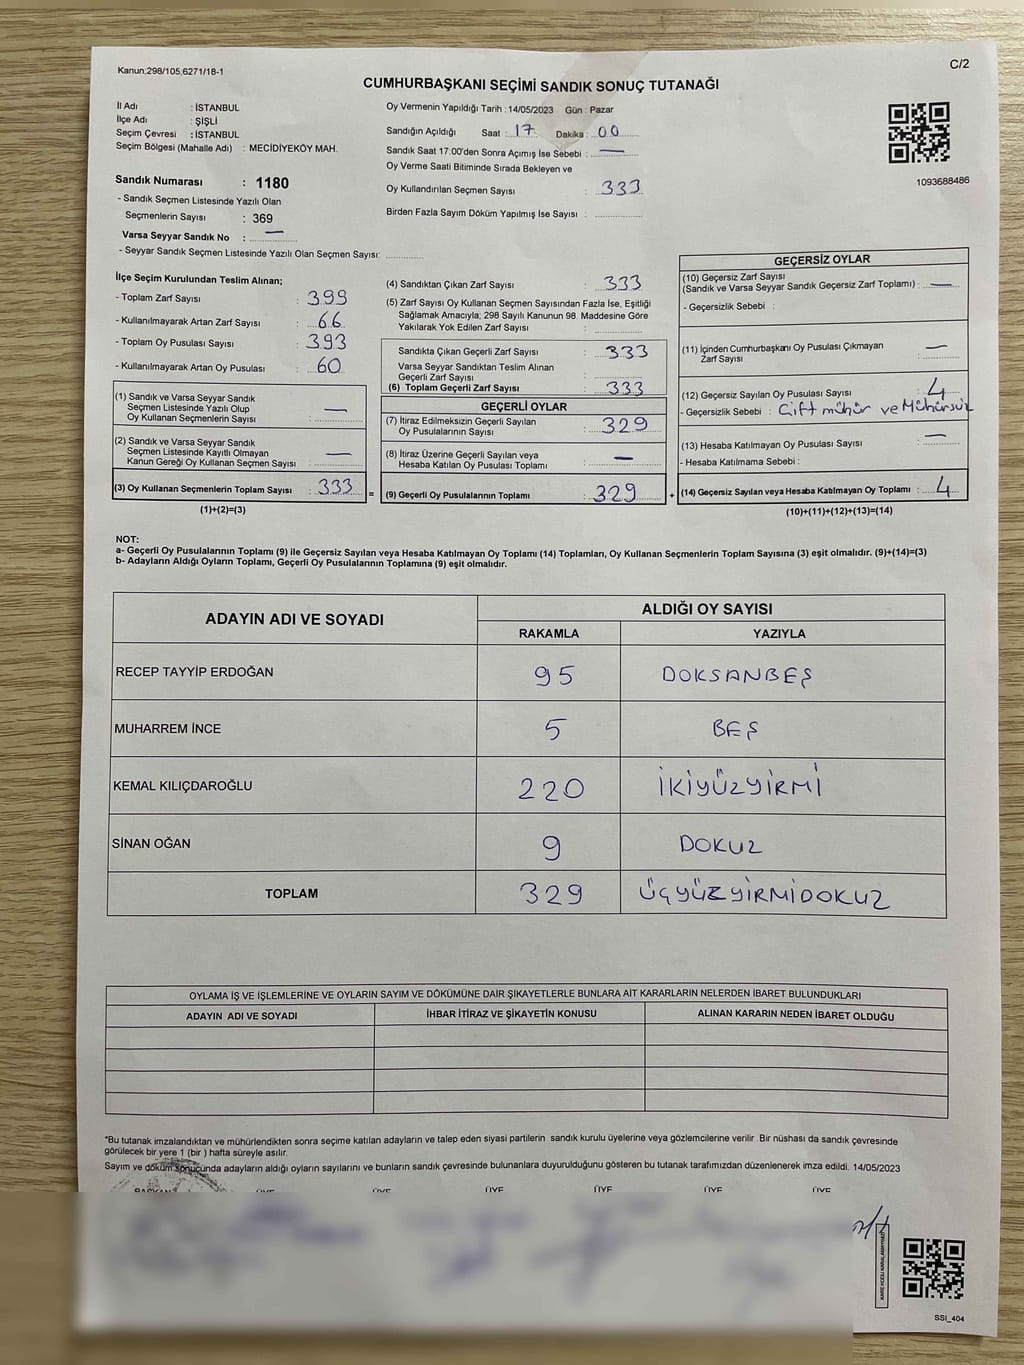 Kanun;298/105;6271/18-1
C/2
CUMHURBAŞKANI SEÇİMİ SANDIK SONUÇ TUTANAĞI
İl Adı : İSTANBUL
İlçe Adı : ŞİŞLİ
Seçim Çevresi : İSTANBUL
Seçim Bölgesi (Mahalle Adı) : MECİDİYEKÖY MAH.
Sandık Numarası : 1180
- Sandık Seçmen Listesinde Yazılı Olan
Seçmenlerin Sayısı : 369
Varsa Seyyar Sandık No : —
- Seyyar Sandık Seçmen Listesinde Yazılı Olan Seçmen Sayısı:
Oy Vermenin Yapıldığı Tarih : 14/05/2023 Gün : Pazar
Sandığın Açıldığı Saat : 17 Dakika : 00
Sandık Saat 17:00'den Sonra Açımış İse Sebebi : —
Oy Verme Saati Bitiminde Sırada Bekleyen ve
Oy Kullandırılan Seçmen Sayısı : 333
Birden Fazla Sayım Döküm Yapılmış İse Sayısı :
1093688486
İlçe Seçim Kurulundan Teslim Alınan;
- Toplam Zarf Sayısı : 399
- Kullanılmayarak Artan Zarf Sayısı : 66
- Toplam Oy Pusulası Sayısı : 393
- Kullanılmayarak Artan Oy Pusulası : 60
(1) Sandık ve Varsa Seyyar Sandık
Seçmen Listesinde Yazılı Olup
Oy Kullanan Seçmenlerin Sayısı : —
(2) Sandık ve Varsa Seyyar Sandık
Seçmen Listesinde Kayıtlı Olmayan
Kanun Gereği Oy Kullanan Seçmen Sayısı : —
(3) Oy Kullanan Seçmenlerin Toplam Sayısı : 333
(1)+(2)=(3)
(4) Sandıktan Çıkan Zarf Sayısı : 333
(5) Zarf Sayısı Oy Kullanan Seçmen Sayısından Fazla İse, Eşitliği
Sağlamak Amacıyla; 298 Sayılı Kanunun 98. Maddesine Göre
Yakılarak Yok Edilen Zarf Sayısı :
Sandıkta Çıkan Geçerli Zarf Sayısı : 333
Varsa Seyyar Sandıktan Teslim Alınan
Geçerli Zarf Sayısı :
(6) Toplam Geçerli Zarf Sayısı : 333
GEÇERLİ OYLAR
(7) İtiraz Edilmeksizin Geçerli Sayılan
Oy Pusulalarının Sayısı : 329
(8) İtiraz Üzerine Geçerli Sayılan veya
Hesaba Katılan Oy Pusulası Toplamı : —
= (9) Geçerli Oy Pusulalarının Toplamı : 329 +
GEÇERSİZ OYLAR
(10) Geçersiz Zarf Sayısı
(Sandık ve Varsa Seyyar Sandık Geçersiz Zarf Toplamı) : —
- Geçersizlik Sebebi :
(11) İçinden Cumhurbaşkanı Oy Pusulası Çıkmayan
Zarf Sayısı : —
(12) Geçersiz Sayılan Oy Pusulası Sayısı : 4
- Geçersizlik Sebebi : Çift mühür ve Mühürsüz
(13) Hesaba Katılmayan Oy Pusulası Sayısı : —
- Hesaba Katılmama Sebebi :
(14) Geçersiz Sayılan veya Hesaba Katılmayan Oy Toplamı : 4
(10)+(11)+(12)+(13)=(14)
NOT:
a- Geçerli Oy Pusulalarının Toplamı (9) ile Geçersiz Sayılan veya Hesaba Katılmayan Oy Toplamı (14) Toplamları, Oy Kullanan Seçmenlerin Toplam Sayısına (3) eşit olmalıdır. (9)+(14)=(3)
b- Adayların Aldığı Oyların Toplamı, Geçerli Oy Pusulalarının Toplamına (9) eşit olmalıdır.
ADAYIN ADI VE SOYADI
ALDIĞI OY SAYISI
RAKAMLA YAZIYLA
RECEP TAYYİP ERDOĞAN 95 DOKSANBEŞ
MUHARREM İNCE 5 BEŞ
KEMAL KILIÇDAROĞLU 220 İKİYÜZYİRMİ
SİNAN OĞAN 9 DOKUZ
TOPLAM 329 ÜÇYÜZYİRMİDOKUZ
OYLAMA İŞ VE İŞLEMLERİNE VE OYLARIN SAYIM VE DÖKÜMÜNE DAİR ŞİKAYETLERLE BUNLARA AİT KARARLARIN NELERDEN İBARET BULUNDUKLARI
ADAYIN ADI VE SOYADI İHBAR İTİRAZ VE ŞİKAYETİN KONUSU ALINAN KARARIN NEDEN İBARET OLDUĞU
*Bu tutanak imzalandıktan ve mühürlendikten sonra seçime katılan adayların ve talep eden siyasi partilerin sandık kurulu üyelerine veya gözlemcilerine verilir .Bir nüshası da sandık çevresinde
görülecek bir yere 1 (bir ) hafta süreyle asılır.
Sayım ve döküm sonucunda adayların aldığı oyların sayılarını ve bunların sandık çevresinde bulunanlara duyurulduğunu gösteren bu tutanak tarafımızdan düzenlenerek imza edildi. 14/05/2023
BAŞKAN ÜYE ÜYE ÜYE ÜYE ÜYE ÜYE
SSI_404